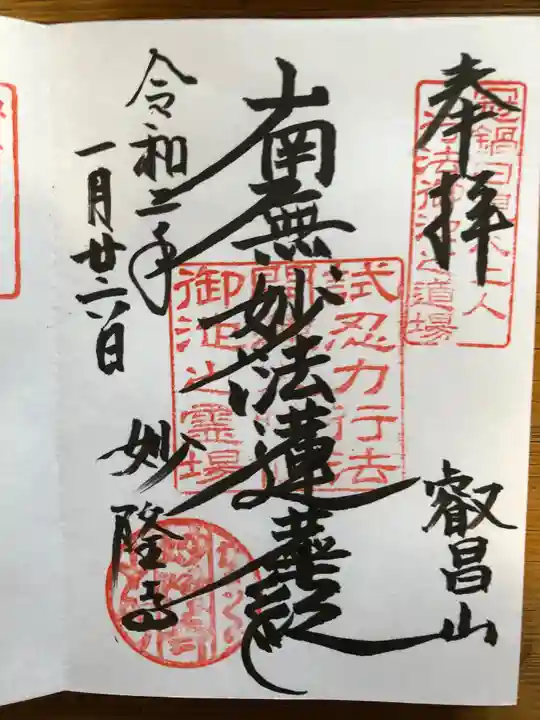 奉拝
冠鍋日親上人
行法御池之道場
叡昌山
南無妙法蓮華経
試忍力行法
御池之霊場
令和二年
一月廿六日
妙隆寺